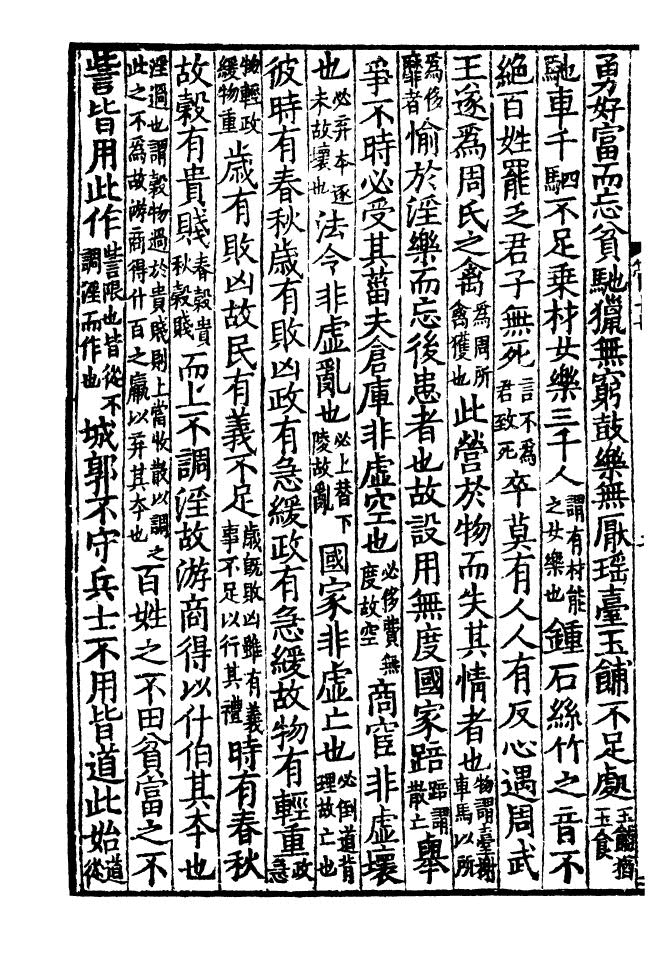 勇好富而忘貧馳獵無窮鼓樂無厭瑤臺玉餔不足處玉餔猶玉食
馳車千駟不足乗材女樂三千人謂有材能之女樂也鍾石絲竹之音不
絶百姓罷乏君子無死言不為君致死卒莫有人人有反心遇周武
王遂為周氏之禽為周所禽獲也此營於物而失其情者也物謂臺榭車馬以所
為侈靡者愉於淫樂而忘後患者也故設用無度國家踣踣謂散亡舉
事不時必受其菑夫倉庫非虛空也必侈費無度故空商宦非虛壞
也必弃本逐末故壞也法令非虛亂也必上替下陵故亂國家非虛亡也必倒道背理故亡也
彼時有春秋歲有敗凶政有急緩政有急緩故物有輕重政急
物輕政緩物重歲有敗凶故民有義不足歲既敗凶雖有義事不足以行其禮時有春秋
故穀有貴賤春穀貴秋穀賤而上不調淫故游商得以什伯其本也
淫過也謂穀物過於貴賤則上當收散以調之此之不為故游商得什百之贏以弃其本也百姓之不田貧富之不
訾皆用此作訾限也皆從不調淫而作也城郭不守兵士不用皆道此始道從